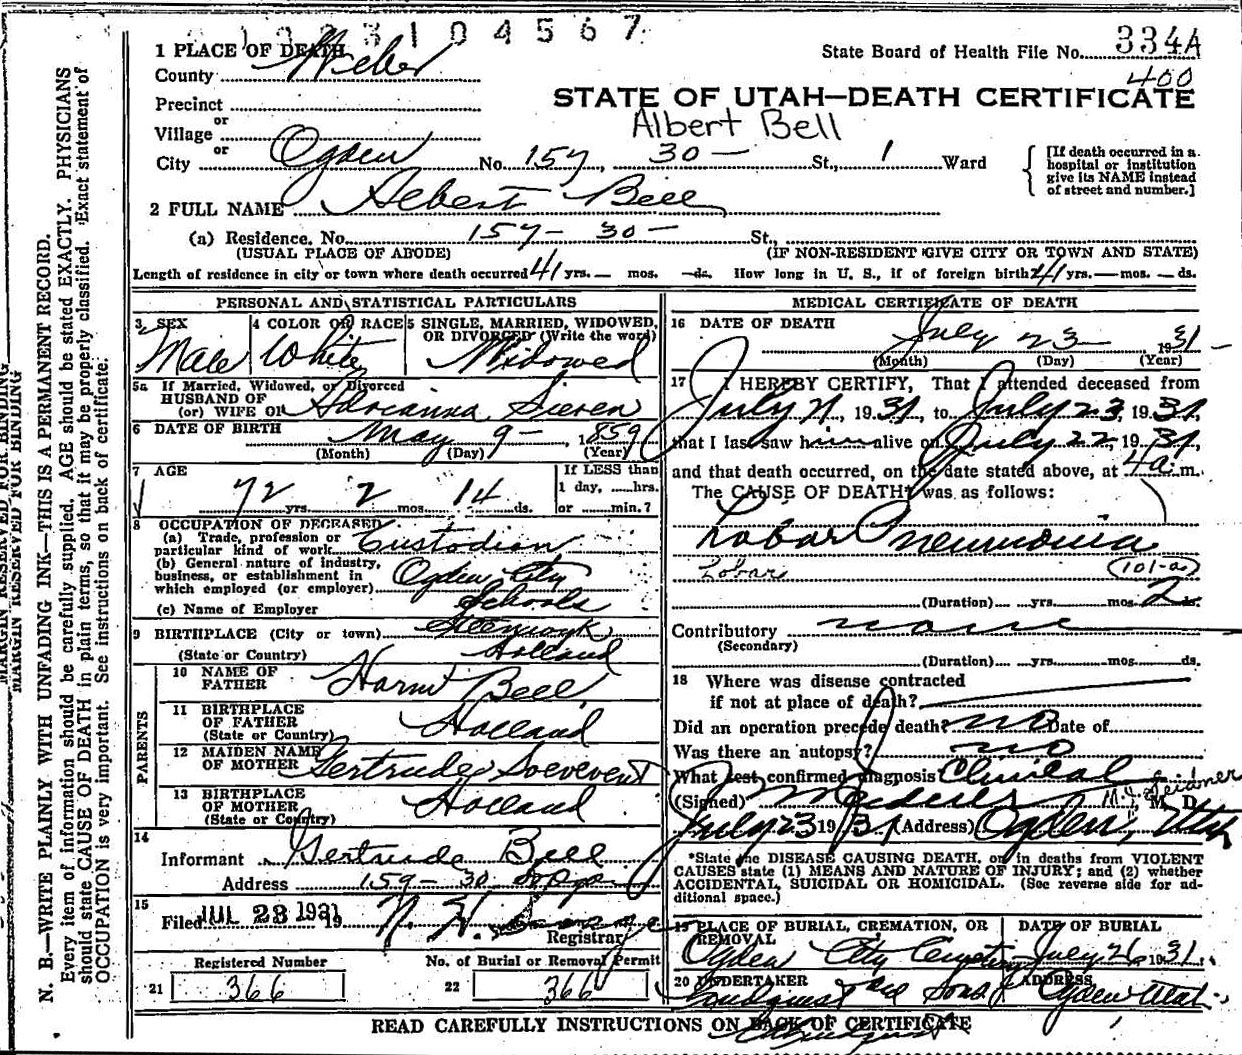 1 2 3 1 0 4 5 6 7
1 PLACE OF DEATH
State Board of Health File No. 334A
County Weber
400
Precinct
STATE OF UTAH—DEATH CERTIFICATE
or
Village
Albert Bell
or
City Ogden No. 157, 30 — St., 1 Ward
[If death occurred in a hospital or institution give its NAME instead of street and number.]
2 FULL NAME Albert Bell
(a) Residence, No. 157 - 30 — St.,
(USUAL PLACE OF ABODE) (IF NON-RESIDENT GIVE CITY OR TOWN AND STATE)
Length of residence in city or town where death occurred 41 yrs. — mos. — ds. How long in U. S., if of foreign birth? 41 yrs. — mos. — ds.
PERSONAL AND STATISTICAL PARTICULARS
3 SEX
Male
4 COLOR OR RACE
White
5 SINGLE, MARRIED, WIDOWED, OR DIVORCED (Write the word)
Widowed
5a If Married, Widowed, or Divorced
HUSBAND OF
(or) WIFE OF Adrianna
6 DATE OF BIRTH May 9 - 1859
(Month) (Day) (Year)
7 AGE
72 yrs. 2 mos. 14 ds.
If LESS than
1 day, ......hrs.
or ......min.?
8 OCCUPATION OF DECEASED
(a) Trade, profession or
particular kind of work Custodian
(b) General nature of industry,
business, or establishment in
which employed (or employer) Ogden City
Schools
(c) Name of Employer
9 BIRTHPLACE (City or town)
(State or Country) Holland
PARENTS
10 NAME OF FATHER Bell
11 BIRTHPLACE OF FATHER (State or Country) Holland
12 MAIDEN NAME OF MOTHER Gertrude
13 BIRTHPLACE OF MOTHER (State or Country) Holland
14
Informant Gertrude Bell
Address 159 - 30
15
Filed JUL 23 1931 19
Registrar
Registered Number
21 366
No. of Burial or Removal Permit
22 366
MEDICAL CERTIFICATE OF DEATH
16 DATE OF DEATH
July 23 1931
(Month) (Day) (Year)
17 I HEREBY CERTIFY, That I attended deceased from
July 21, 1931, to July 23, 1931,
that I last saw him alive on July 22, 1931,
and that death occurred, on the date stated above, at 4 a. m.
The CAUSE OF DEATH was as follows:
Lobar Pneumonia
Lobar 101-a
(Duration) yrs. mos. 2 ds.
Contributory none
(Secondary)
(Duration) yrs. mos. ds.
18 Where was disease contracted
if not at place of death?
Did an operation precede death? no Date of
Was there an autopsy? no
What test confirmed diagnosis Clinical
(Signed) M. D.
July 23 1931 (Address) Ogden, Utah
*State the DISEASE CAUSING DEATH, or in deaths from VIOLENT
CAUSES state (1) MEANS AND NATURE OF INJURY; and (2) whether
ACCIDENTAL, SUICIDAL OR HOMICIDAL. (See reverse side for additional space.)
19 PLACE OF BURIAL, CREMATION, OR REMOVAL
Ogden City Cemetery
DATE OF BURIAL
July 26 1931
20 UNDERTAKER
and Sons
ADDRESS
Ogden Utah
READ CAREFULLY INSTRUCTIONS ON BACK OF CERTIFICATE
MARGIN RESERVED FOR BINDING
MARGIN RESERVED FOR BINDING
N. B.—WRITE PLAINLY WITH UNFADING INK—THIS IS A PERMANENT RECORD.
Every item of information should be carefully supplied. AGE should be stated EXACTLY. PHYSICIANS
should state CAUSE OF DEATH in plain terms, so that it may be properly classified. Exact statement of
OCCUPATION is very important. See instructions on back of certificate.